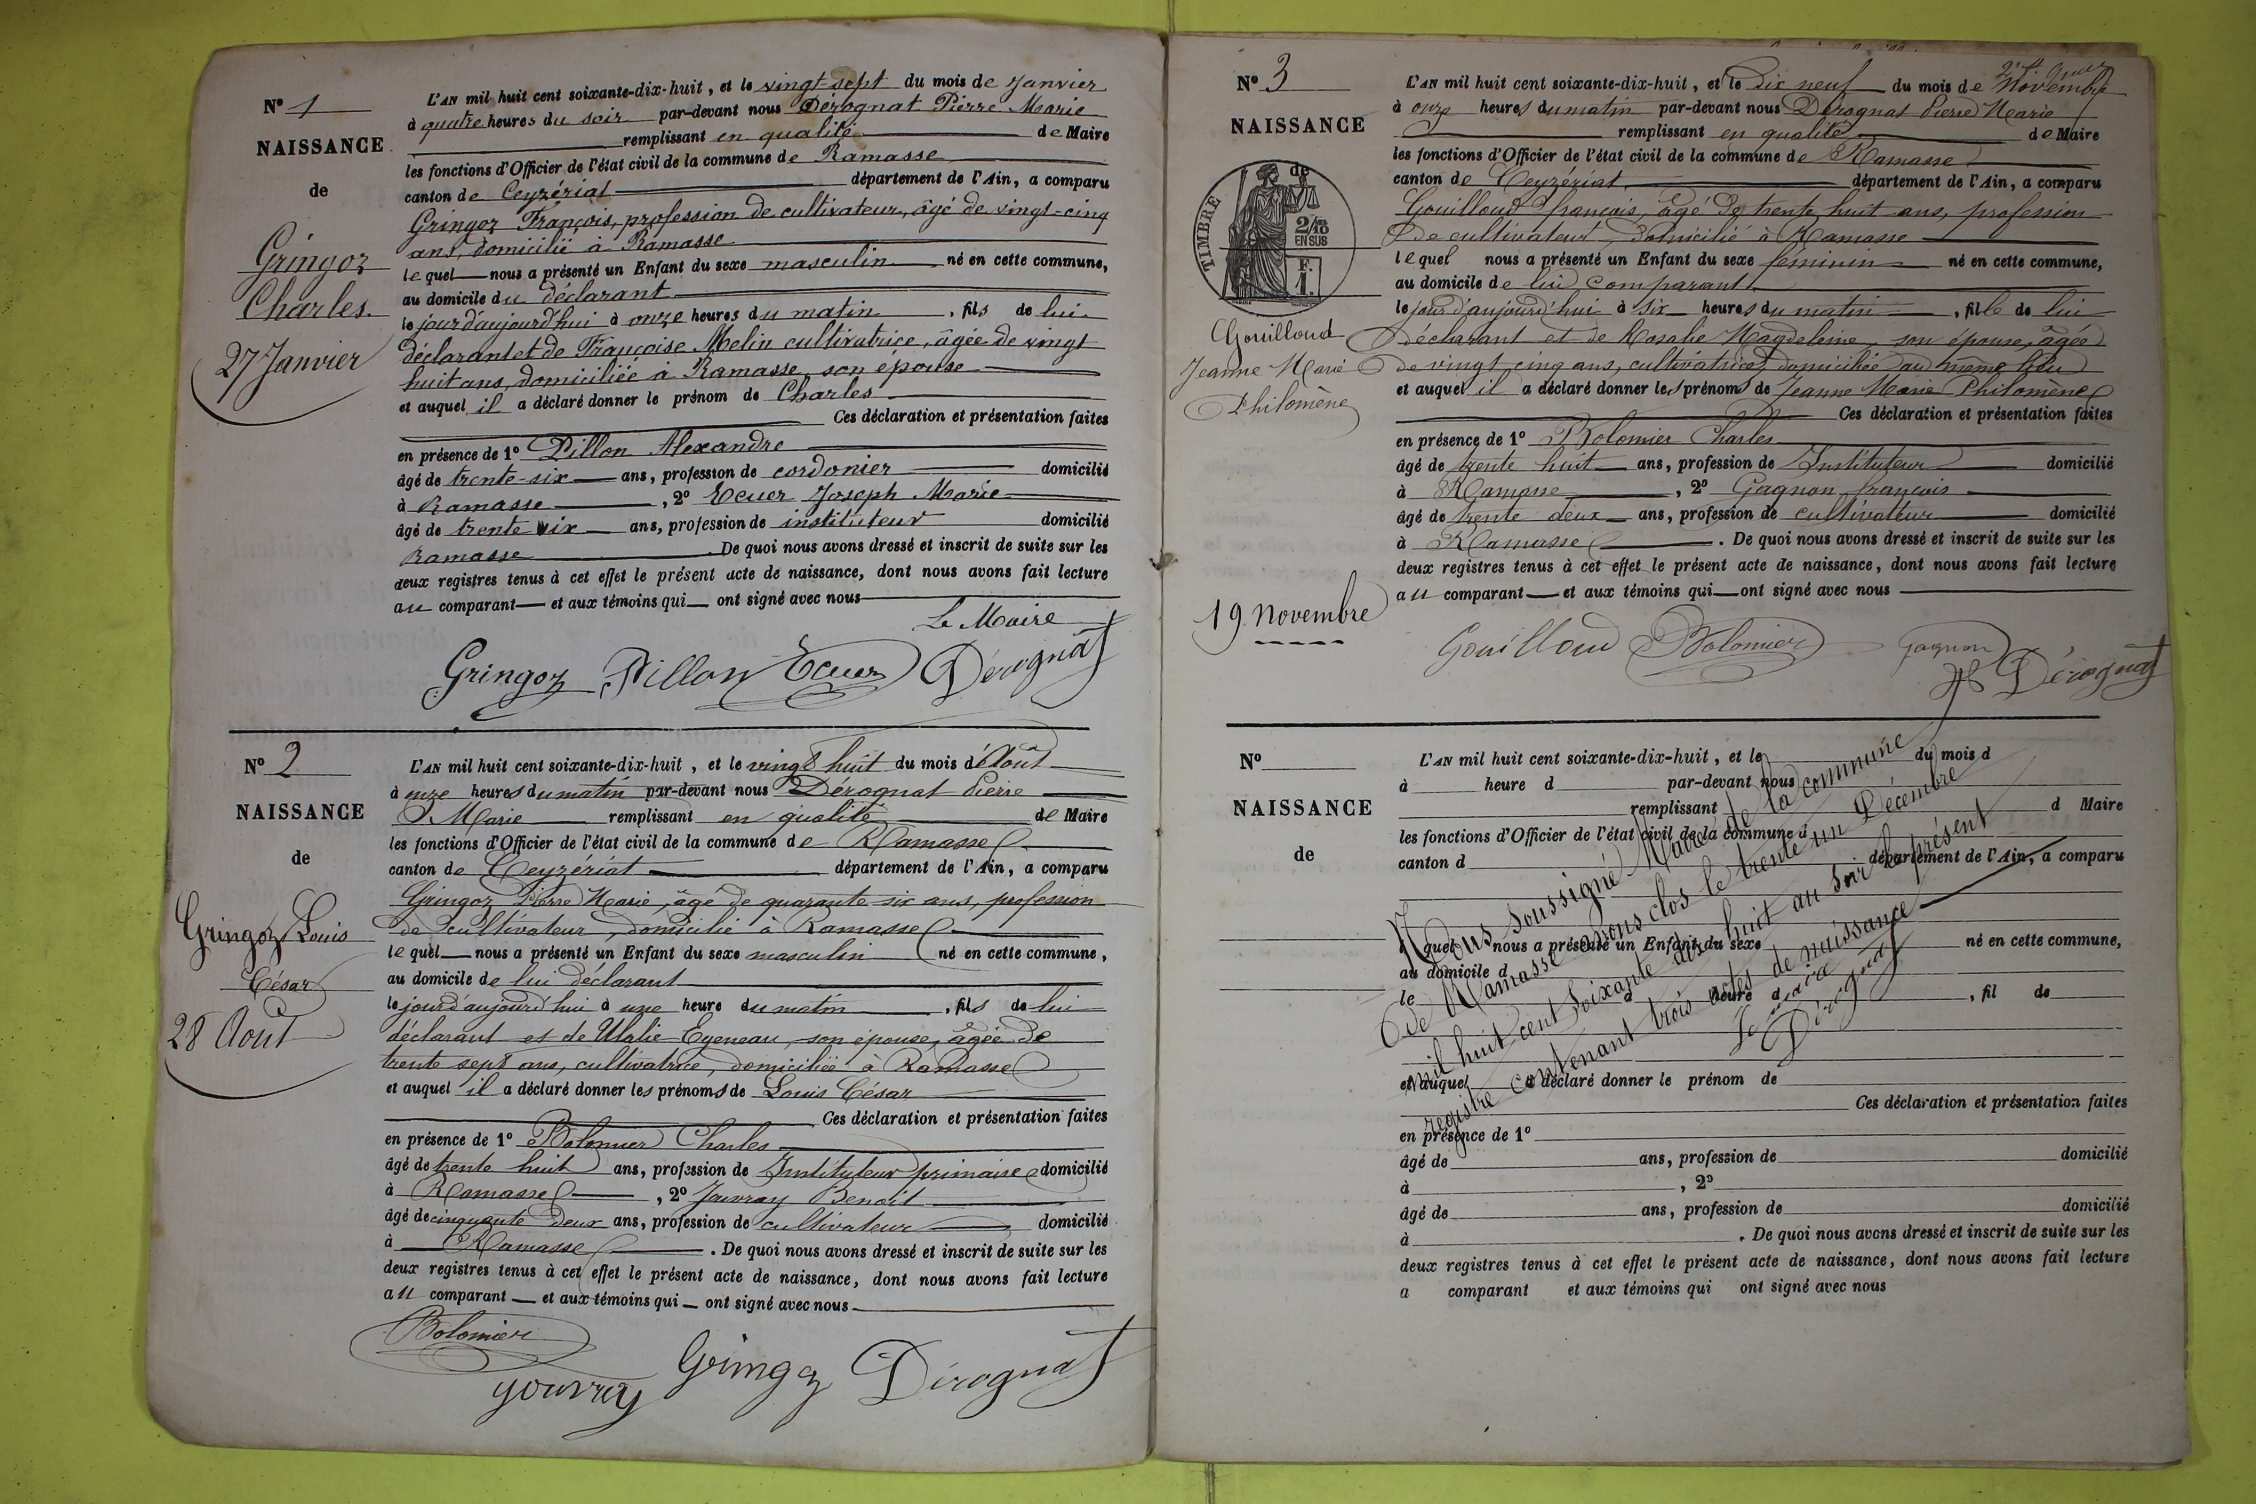 N° 1
NAISSANCE
de
Gringoz
Charles.
27 Janvier
L'AN mil huit cent soixante-dix-huit, et le vingt-sept du mois de Janvier
à quatre heures du soir par-devant nous Dérognat Pierre Marie
remplissant en qualité de Maire
les fonctions d'Officier de l'état civil de la commune de Ramasse
canton de Ceyzériat département de l'Ain, a comparu
Gringoz François, profession de cultivateur, âgé de vingt-cinq
ans, domicilié à Ramasse
lequel nous a présenté un Enfant du sexe masculin né en cette commune,
au domicile du déclarant
le jour d'aujourd'hui à onze heures du matin, fils de lui
déclarant et de Françoise Melin cultivatrice, âgée de vingt
huit ans, domiciliée à Ramasse, son épouse
et auquel il a déclaré donner le prénom de Charles
Ces déclaration et présentation faites
en présence de 1° Pillon Alexandre
âgé de trente-six ans, profession de cordonier domicilié
à Ramasse, 2° Ecuer Joseph Marie
âgé de trente six ans, profession de instituteur domicilié
Ramasse. De quoi nous avons dressé et inscrit de suite sur les
deux registres tenus à cet effet le présent acte de naissance, dont nous avons fait lecture
au comparant et aux témoins qui ont signé avec nous
Le Maire
Gringoz Pillon Ecuer Dérognat
N° 2
NAISSANCE
de
Gringoz Louis
César
28 Aout
L'AN mil huit cent soixante-dix-huit, et le vingt huit du mois d'Août
à onze heures du matin par-devant nous Dérognat Pierre
Marie remplissant en qualité de Maire
les fonctions d'Officier de l'état civil de la commune de Ramasse
canton de Ceyzériat département de l'Ain, a comparu
Gringoz Pierre Marie, âgé de quarante six ans, profession
de cultivateur, domicilié à Ramasse
lequel nous a présenté un Enfant du sexe masculin né en cette commune,
au domicile de lui déclarant
le jour d'aujourd'hui à une heure du matin, fils de lui
déclarant et de Ulalie Eyeneau, son épouse, âgée de
trente sept ans, cultivatrice, domiciliée à Ramasse
et auquel il a déclaré donner les prénoms de Louis César
Ces déclaration et présentation faites
en présence de 1° Bolomier Charles
âgé de trente huit ans, profession de Instituteur primaire domicilié
à Ramasse, 2° Jouvray Benoit
âgé de cinquante deux ans, profession de cultivateur domicilié
à Ramasse. De quoi nous avons dressé et inscrit de suite sur les
deux registres tenus à cet effet le présent acte de naissance, dont nous avons fait lecture
au comparant et aux témoins qui ont signé avec nous
Bolomier
Jouvray Gringoz Dérognat
N° 3
NAISSANCE
de
TIMBRE
2/10
EN SUS
F.
1.
Gouilloud
Jeanne Marie
Philomène
19 Novembre
L'AN mil huit cent soixante-dix-huit, et le dix neuf du mois de Novembre
à onze heures du matin par-devant nous Dérognat Pierre Marie
remplissant en qualité de Maire
les fonctions d'Officier de l'état civil de la commune de Ramasse
canton de Ceyzériat département de l'Ain, a comparu
Gouilloud françois, âgé de trente huit ans, profession
de cultivateur, domicilié à Ramasse
lequel nous a présenté un Enfant du sexe féminin né en cette commune,
au domicile de lui comparant
le jour d'aujourd'hui à six heures du matin, fille de lui
déclarant et de Rosalie Magdeleine, son épouse, âgée
de vingt cinq ans, cultivatrice, domiciliée au même lieu
et auquel il a déclaré donner les prénoms de Jeanne Marie Philomène
Ces déclaration et présentation faites
en présence de 1° Bolomier Charles
âgé de trente huit ans, profession de Instituteur domicilié
à Ramasse, 2° Gagnon françois
âgé de trente deux ans, profession de cultivateur domicilié
à Ramasse. De quoi nous avons dressé et inscrit de suite sur les
deux registres tenus à cet effet le présent acte de naissance, dont nous avons fait lecture
au comparant et aux témoins qui ont signé avec nous
Gouilloud Bolomier Gagnon Dérognat
N°
NAISSANCE
de
L'AN mil huit cent soixante-dix-huit, et le du mois d
à heure d par-devant nous
remplissant d Maire
les fonctions d'Officier de l'état civil de la commune d
canton d département de l'Ain, a comparu
quel nous a présenté un Enfant du sexe né en cette commune,
au domicile d
le à heure d, fil de
et auquel a déclaré donner le prénom de
Ces déclaration et présentation faites
en présence de 1°
âgé de ans, profession de domicilié
à, 2°
âgé de ans, profession de domicilié
à. De quoi nous avons dressé et inscrit de suite sur les
deux registres tenus à cet effet le présent acte de naissance, dont nous avons fait lecture
a comparant et aux témoins qui ont signé avec nous
Nous soussigné Maire de la commune
de Ramasse avons clos le trente un Décembre
mil huit cent soixante dix huit au soir le présent
registre contenant trois actes de naissance
Le Maire
Dérognat